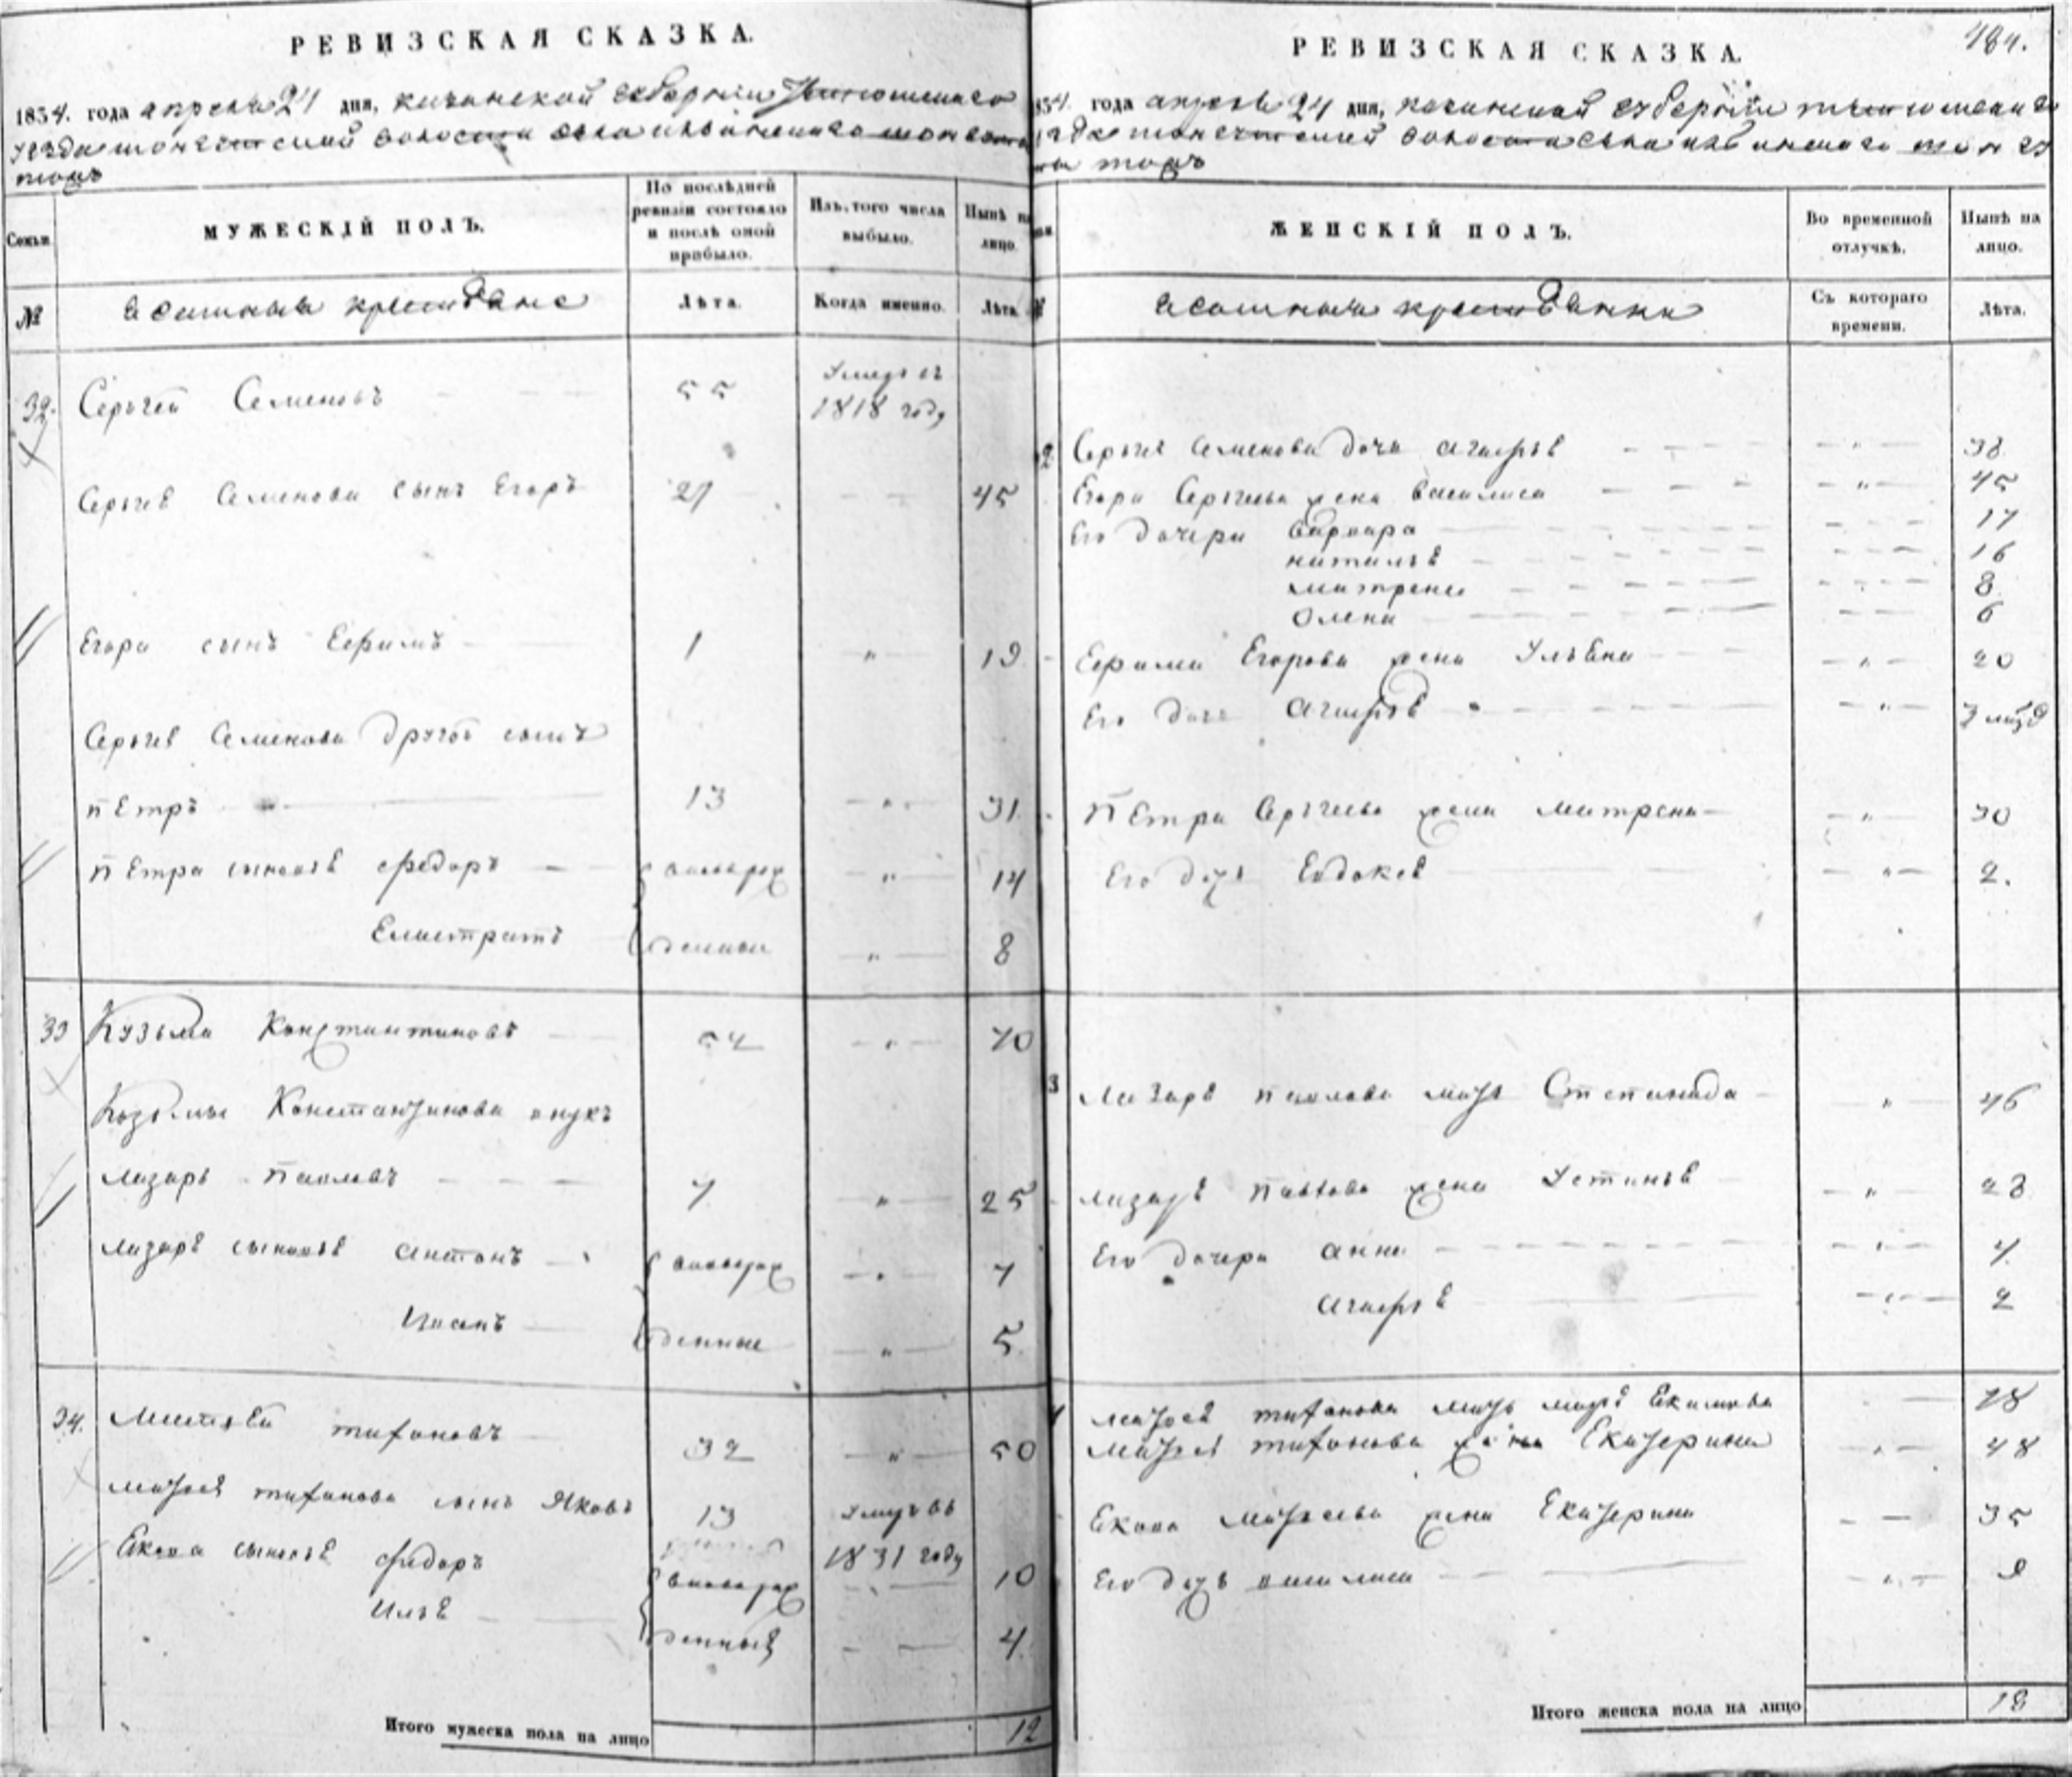 РЕВИЗСКАЯ СКАЗКА.
1834. года апреля 24 дня, казанской губернии
уезда волости села
тожъ
Семьи.
МУЖЕСКІЙ ПОЛЪ.
По послѣдней ревизіи состояло и послѣ оной прибыло.
Изъ того числа выбыло.
Нынѣ на лицо.
№
ясашныя крестьяне
Лѣта.
Когда именно.
Лѣта.
32. Сергей Семеновъ 55 Умеръ въ 1818 году
Сергея Семенова сынъ Егоръ 27 45
Егора сынъ Ефимъ 1 19
Сергея Семенова другой сынъ
Петръ 13 31.
Петра сыновья Федоръ вновьрож 14
Елистратъ денныя 8
33 Кузьма Константиновъ 52 70
Козьмы Константинова внукъ
Лазарь Павловъ 7 25
Лазаря сыновья Антонъ вновьрож 7
Иванъ денные 5
34. Матвей Тифоновъ 32 50
Матвея Тифонова сынъ Яковъ 13 Умеръ въ 1831 году
Екова сыновья Федоръ вновьрож 10
Илья денныя 4
Итого мужеска пола на лицо 12
РЕВИЗСКАЯ СКАЗКА.
184.
834. года апреля 24 дня, казанской губернии
волости села
тожъ
ЖЕНСКІЙ ПОЛЪ.
Во временной отлучкѣ.
Нынѣ на лицо.
№
ясашныя крестьянки
Съ котораго времени.
Лѣта.
2 Сергея Семенова дочь Агафья 38
Егора Сергеева жена Василиса 45
Его дочери Варвара 17
Наталья 16
Матрена 8
Олена 6
Ефима Егорова жена Ульяна 20
Его дочь Агафья
Петра Сергеева жена Матрена 30
Его дочь Евдокея 2.
3 Лазаря Павлова мать Степанида 46
Лазаря Павлова жена Устинья 23
Его дочери Анна 4
Агафья 2
4 Матвея Тифонова мать Марья Екимова 78
Матвея Тифонова жена Екатерина 48
Екова Матвеева жена Екатерина 35
Его дочь Василиса
Итого женска пола на лицо 18